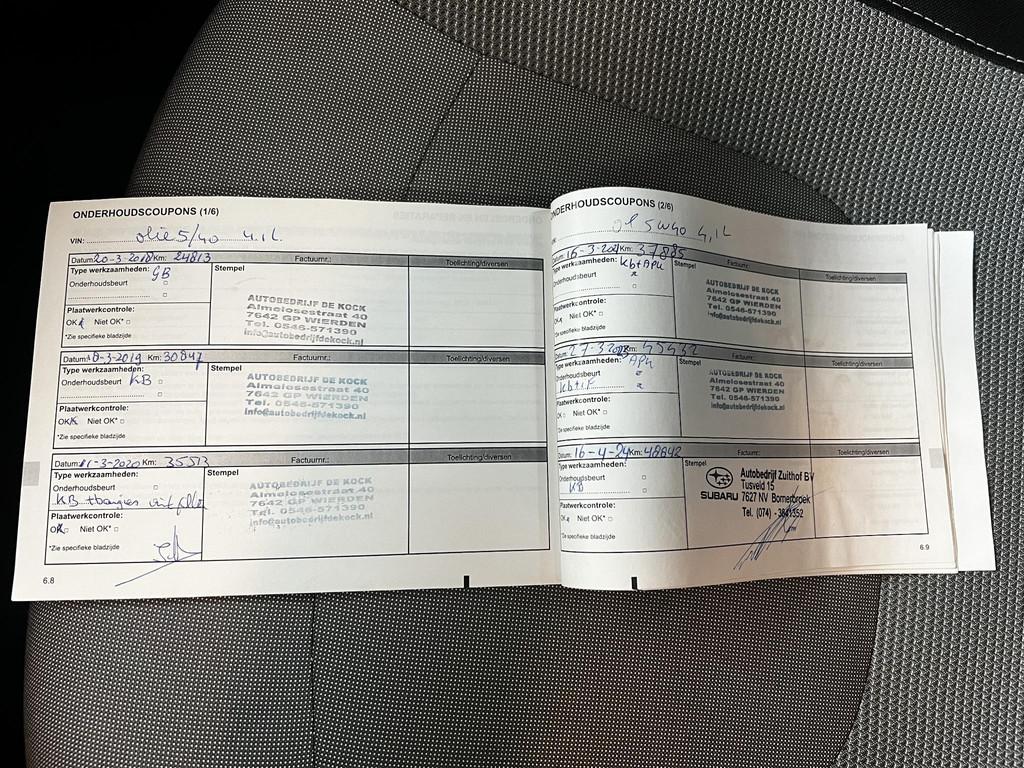 ONDERHOUDSCOUPONS (1/6)
VIN: olie 5/40 4.1 L.
Datum: 20-3-2018 Km: 24813 Factuurnr.: Toelichting/diversen
Type werkzaamheden: GB Stempel
Onderhoudsbeurt
Plaatwerkcontrole:
OK Niet OK*
*Zie specifieke bladzijde
AUTOBEDRIJF DE KOCK
Almelosestraat 40
7642 GP WIERDEN
Tel. 0546-571390
info@autobedrijfdekock.nl
Datum: 18-3-2019 Km: 30847 Factuurnr.: Toelichting/diversen
Type werkzaamheden: Stempel
Onderhoudsbeurt KB
Plaatwerkcontrole:
OK Niet OK*
*Zie specifieke bladzijde
AUTOBEDRIJF DE KOCK
Almelosestraat 40
7642 GP WIERDEN
Tel. 0546-571390
info@autobedrijfdekock.nl
Datum: 11-3-2020 Km: 35513 Factuurnr.: Toelichting/diversen
Type werkzaamheden: Stempel
Onderhoudsbeurt
KB
Plaatwerkcontrole:
OK Niet OK*
*Zie specifieke bladzijde
AUTOBEDRIJF DE KOCK
Almelosestraat 40
7642 GP WIERDEN
Tel. 0546-571390
info@autobedrijfdekock.nl
6.8
ONDERHOUDSCOUPONS (2/6)
5W40 4,1L
Datum: 16-3-2021 Km: 37885 Factuurnr.: Toelichting/diversen
Type werkzaamheden: Kb+APK Stempel
Onderhoudsbeurt
Plaatwerkcontrole:
OK Niet OK*
*Zie specifieke bladzijde
AUTOBEDRIJF DE KOCK
Almelosestraat 40
7642 GP WIERDEN
Tel. 0546-571390
info@autobedrijfdekock.nl
Datum: 27-3-2023 Km: 45432 Factuurnr.: Toelichting/diversen
Type werkzaamheden: APK Stempel
Onderhoudsbeurt
Plaatwerkcontrole:
OK Niet OK*
*Zie specifieke bladzijde
AUTOBEDRIJF DE KOCK
Almelosestraat 40
7642 GP WIERDEN
Tel. 0546-571390
info@autobedrijfdekock.nl
Datum: 16-4-24 Km: 48842 Factuurnr.: Toelichting/diversen
Type werkzaamheden: Stempel
Onderhoudsbeurt
KB
Plaatwerkcontrole:
OK Niet OK*
*Zie specifieke bladzijde
SUBARU
Autobedrijf Zuithof BV
Tusveld 15
7627 NV Bornerbroek
Tel. (074) - 3841352
6.9